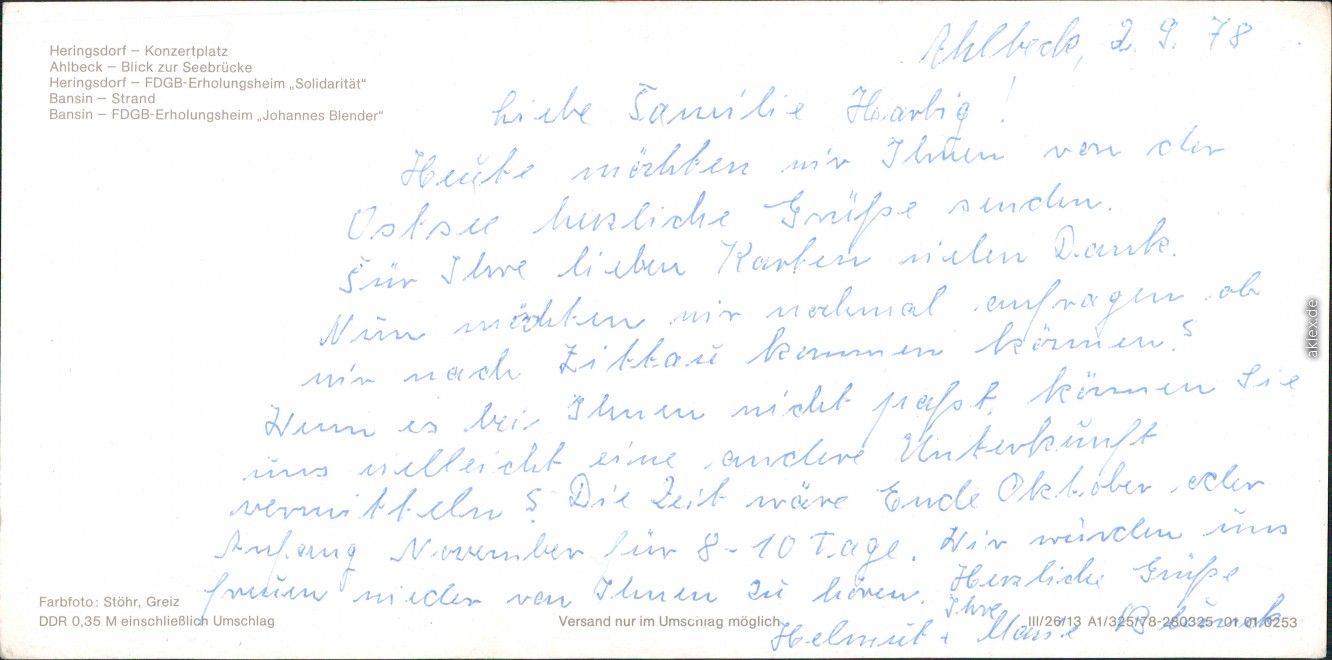 Heringsdorf – Konzertplatz
Ahlbeck – Blick zur Seebrücke
Heringsdorf – FDGB-Erholungsheim „Solidarität“
Bansin – Strand
Bansin – FDGB-Erholungsheim „Johannes Blender“
Ahlbeck, 2. 9. 78
Liebe Familie Harbig!
Heute möchten wir Ihnen von der
Ostsee herzliche Grüße senden.
Für Ihre lieben Karten vielen Dank.
Nun möchten wir nochmal anfragen ob
wir nach Zittau kommen können?
Wenn es bei Ihnen nicht paßt, können Sie
uns vielleicht eine andere Unterkunft
vermitteln? Die Zeit wäre Ende Oktober oder
Anfang November für 8-10 Tage. Wir würden uns
freuen wieder von Ihnen zu hören. Herzliche Grüße
Ihre
Helmut + 
Farbfoto: Stöhr, Greiz
DDR 0,35 M einschließlich Umschlag
Versand nur im Umschlag möglich
III/26/13 A1/325/78-260325 01 01 0253
aklex.de